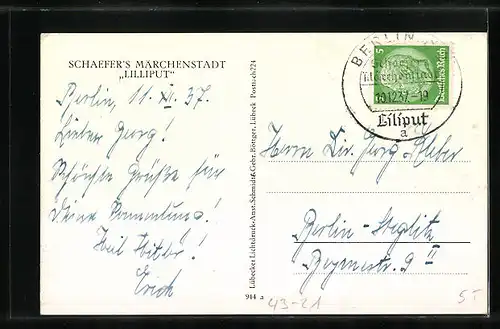 SCHAEFER'S MÄRCHENSTADT
„LILLIPUT"
Berlin, 11. XII. 37.
Lieber Georg!
Schönste Grüße für
Deine Sammlung!
Heil Hitler!
Erich
Lübecker Lichtdruck-Anst. Schmidt & Gebr. Böttger, Lübeck Postfach 224
914 a
BERLIN
Schaefer's
Märchenstadt
10.12.37.-19
Liliput
a
5
Deutsches Reich
Herrn Dir. Georg
Berlin-Steglitz
9 II
43-21
ST